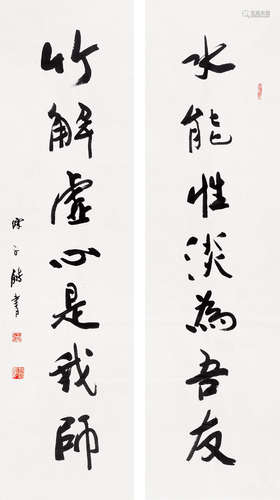 水能性淡為吾友
竹解虛心是我師